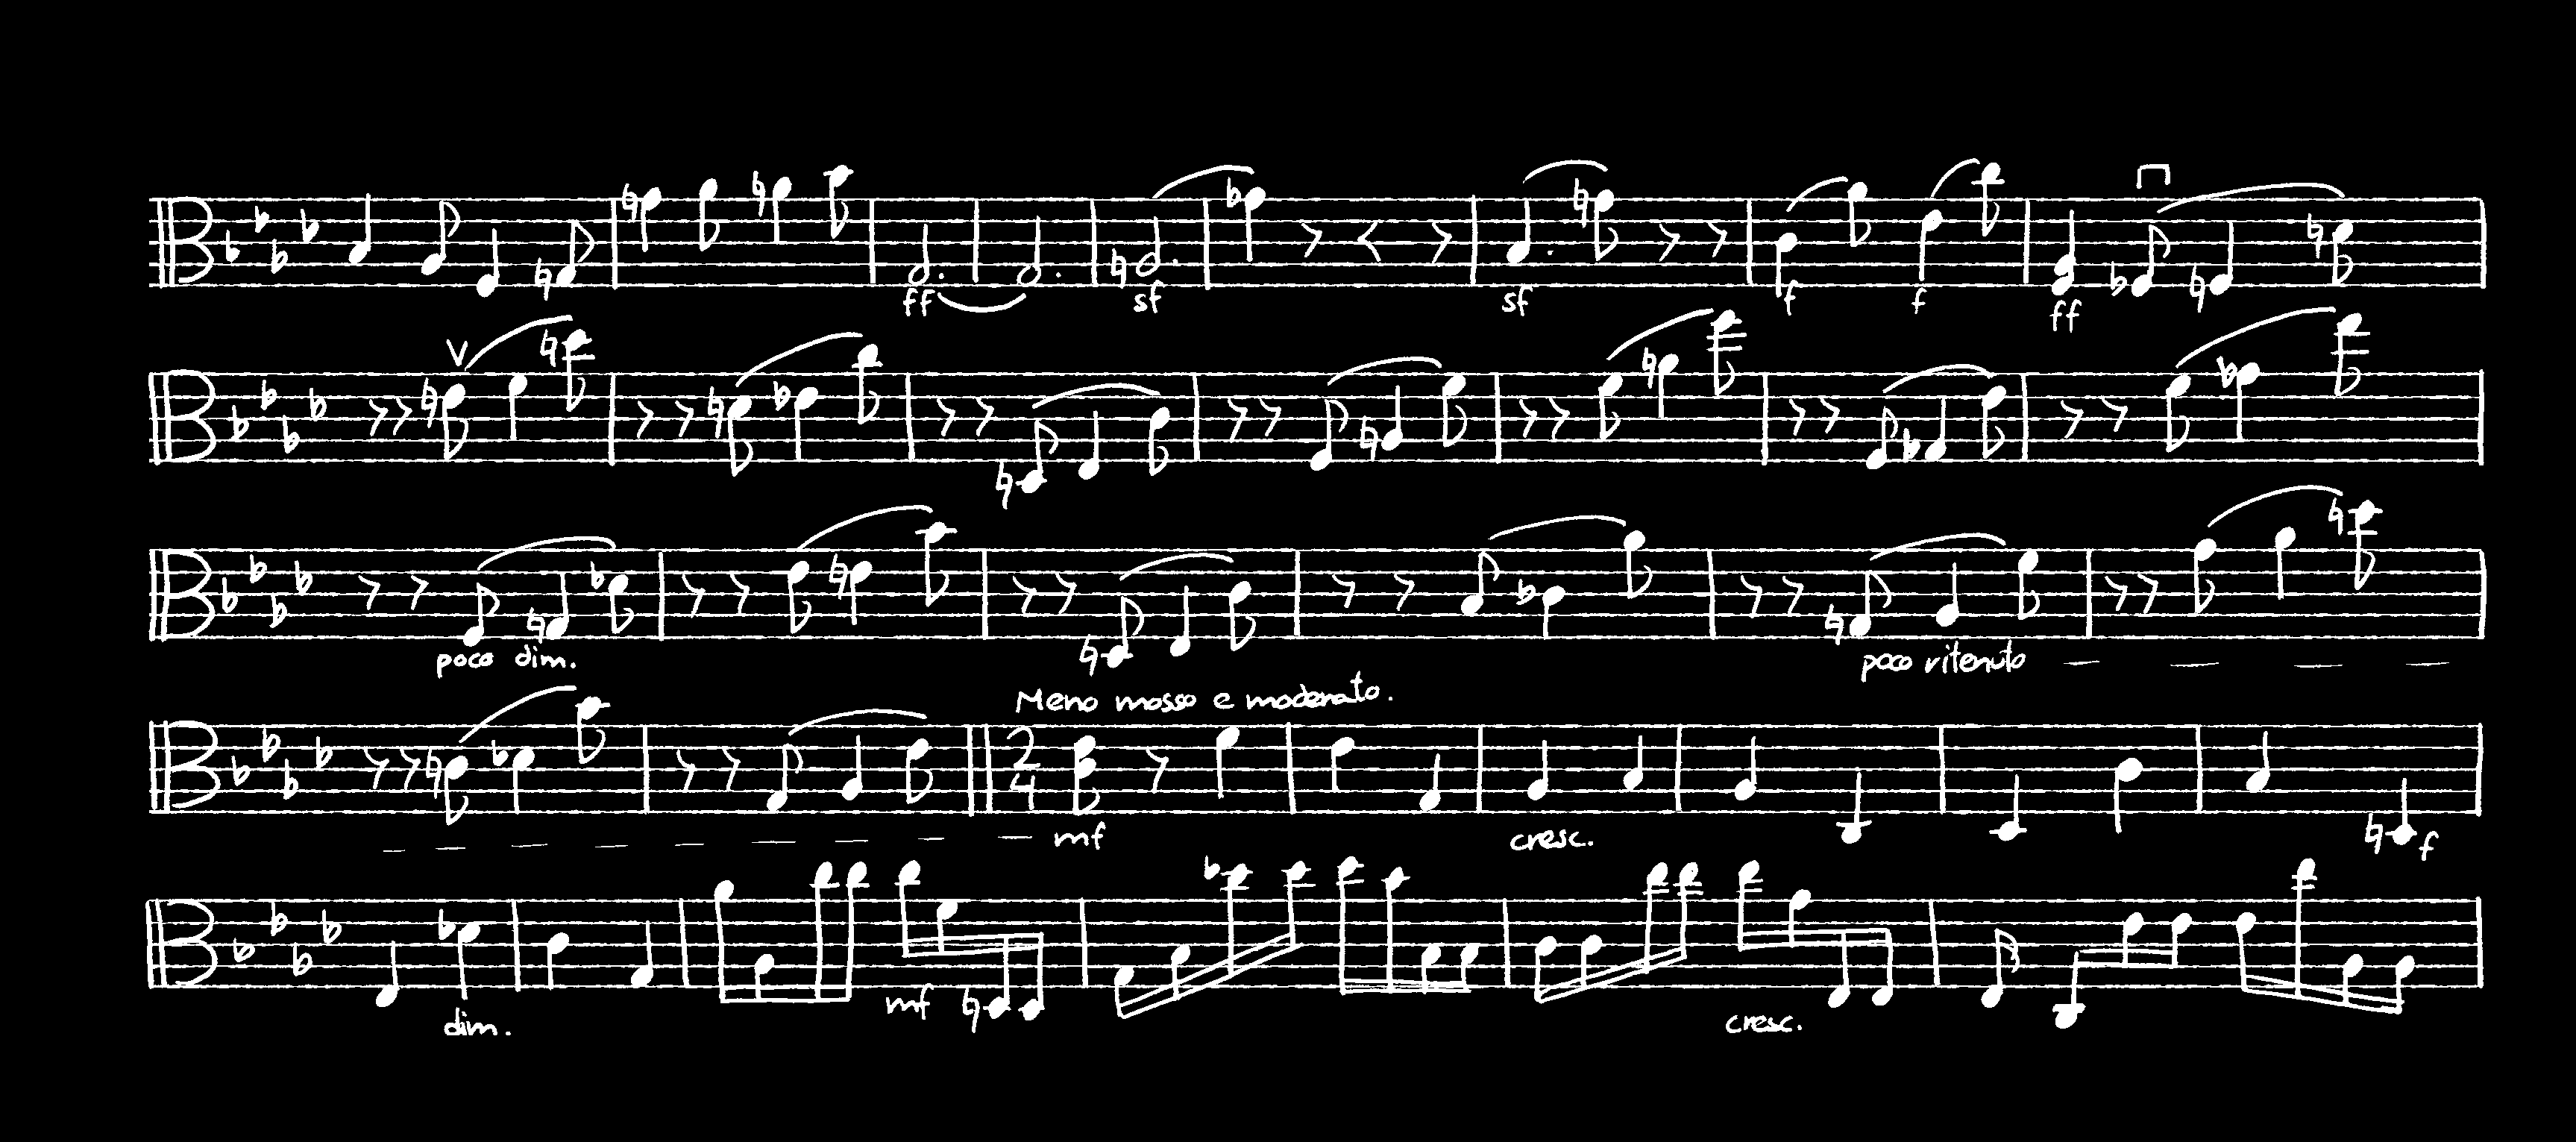 ff sf sf f f ff
V
poco dim. poco ritenuto
Meno mosso e moderato.
2 4
mf cresc. f
dim. mf cresc.